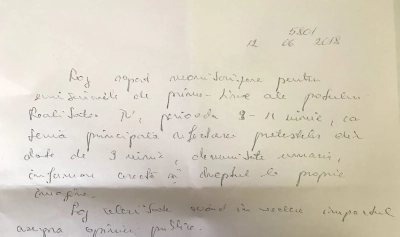 5801
12 06 2018
Rog raport monitorizare pentru
emisiunile de prime-time ale postului
Realitatea TV, perioada 9-11 iunie, ca
temă principală protestelor din
data de 9 iunie, demnitate umană,
informare corectă și dreptul la propria
imagine.
Rog celeritate având în vedere impactul
asupra opiniei publice.